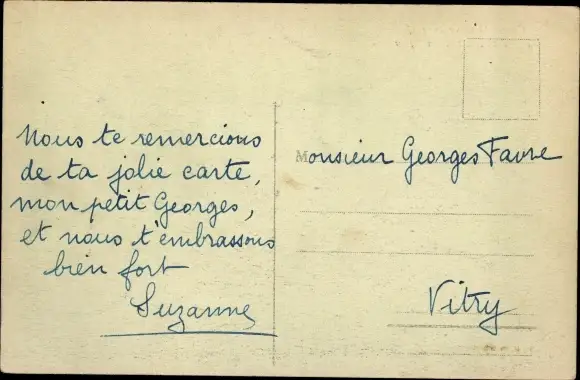 Nous te remercions
de ta jolie carte,
mon petit Georges,
et nous t'embrassons
bien fort
Suzanne
Monsieur Georges Favre
Vitry